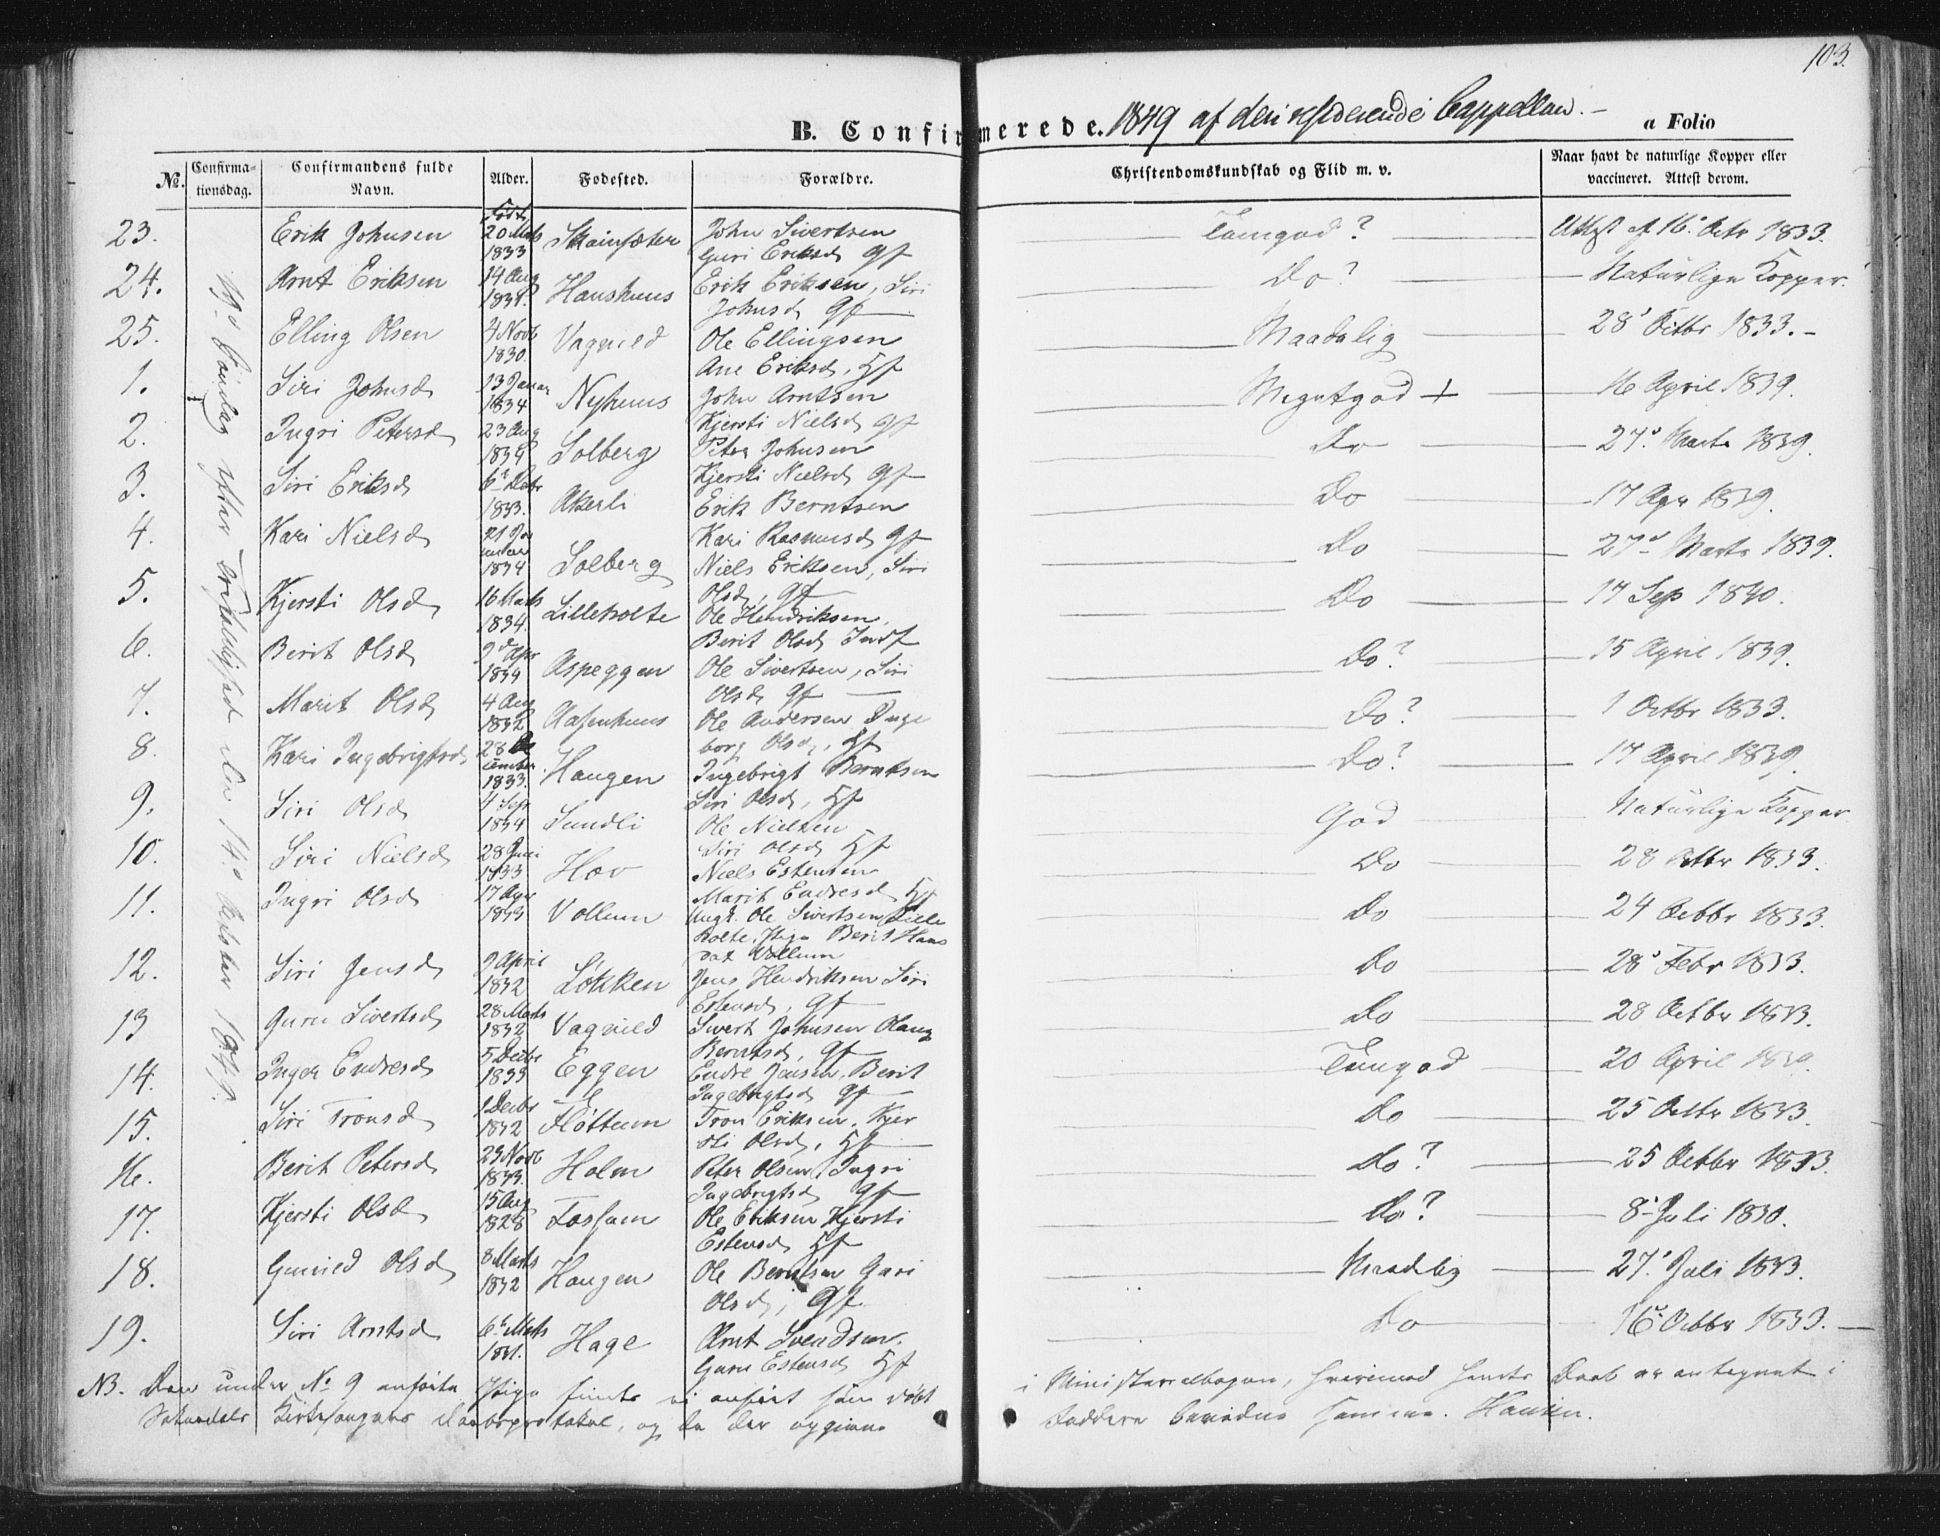 103.
B. Confirmerede. 1849 af den residerende Cappellan. –
a Folio
No.
Confirma-
tionsdag.
Confirmandens fulde
Navn.
Alder.
Fodested.
Forældre.
Christendomskundskab og Flid m. v.
Naar havt de naturlige Kopper eller
vaccineret. Attest derom.
Født
23. Erik Johnsen 20 Marts 1833 John Sivertsen Guri Eriksd gf Temgod? Attest af 16. Octr 1833.
24. Arnt Eriksen 14 Aug Haushuus Erik Eriksen, Siri Johnsd gf Do? Naturlige Kopper.
25. Elling Olsen 4 Novb 1830 Vagnild Ole Ellingsen Ane Eriksd, Hf Maadelig 28' Octbr 1833. –
1. Siri Johnsd 13 Januar 1834 Nyhuus John Arntsen Kjersti Nielsd gf Megetgod + 16 April 1839.
2. Ingri Petersd 23 Aug 1834 Solberg Peter Johnsen Kjersti Nielsd gf Do 27' Marts 1839.
3. Siri Eriksd 1833. Akerli Erik Berntsen Kari Rasmusd gf Do 17 Apr 1839.
4. Kari Nielsd 21 Januar 1834 Solberg Niels Eriksen, Siri Olsd, gf Do 27' Marts 1839.
5. Kjersti Olsd 16 Marts 1834. Lilleholte Ole Hendriksen, Berit Olsd Do 17 Sep 1840.
6. Berit Olsd 9de Apr 1834 Aspeggen Ole Sivertsen, Siri Olsd gf Do? 15 April 1839.
7. Marit Olsd 4 Aug 1832 Aasenhuus Ole Andersen Ingeborg Olsd, Hf Do? 1 Octbr 1833.
8. Kari Ingebrigtsd 28 December 1833. Haugen Ingebrigt Berntsen Siri Olsd, Hf Do? 17 April 1839.
9. Siri Olsd 4 Sep 1834 Sundli Ole Nielsen Siri Olsd Hf God Naturlige Kopper
10. Siri Nielsd 28 Juni 1833 Hov Niels Estensen Marit Endresd Hf Do 28 Octbr 1833.
11. Ingri Olsd 17 Apr 1833 Vollum Ungk. Ole Sivertsen Lilleholte, Pige Berit Hansdat Vollum Do 24 Octbr 1833.
12. Siri Jensd 9 April 1832 Løkken Jens Hendriksen Siri Estensd, gf Do 28' Febr 1833.
13 Guru Sivertsd 28 Marts 1832 Vagnild Sivert Johnsen Berntsd, gf Do 28 Octbr 1833.
14. Inger Endresd 5 Decbr 1833 Eggen Endre Jensen, Berit Ingebrigtsd gf Temgod 20 April 1839.
15. Siri Tronsd 1 Decbr 1832 Fløttum Tron Eriksen, Kjersti Olsd, Hf Do 25 Octbr 1833.
16. Berit Petersd 29 Novb 1833. Holm Peter Olsen, Ingri Ingebrigtsd gf Do? 25 Octbr 1833.
17. Kjersti Olsd 15 Aug 1828 Fossum Ole Eriksen Kjersti Estensd Hf Do? 8' Juli 1830.
18. Gunild Olsd 8 Marts 1832 Haugen Ole Berntsen Guri Olsd, gf. Maadelig 27' Juli 1833.
19. Siri Arntsd 6te Marts 1831. Hage Arnt Svendsen. Guru Estensd Hf Do 16' Octbr 1833. –
19d Søndag efter Trefoldighed den 14de October 1849.
NB. Den under No 9 anførte Pige findes ei anført som døbt i Ministerialbogen, hvorimod hendes Daab er antegnet i
Soknedals Kirkesangers Daabsprotokol, og da der opgivne Faddere bevidne samme. Hansen.